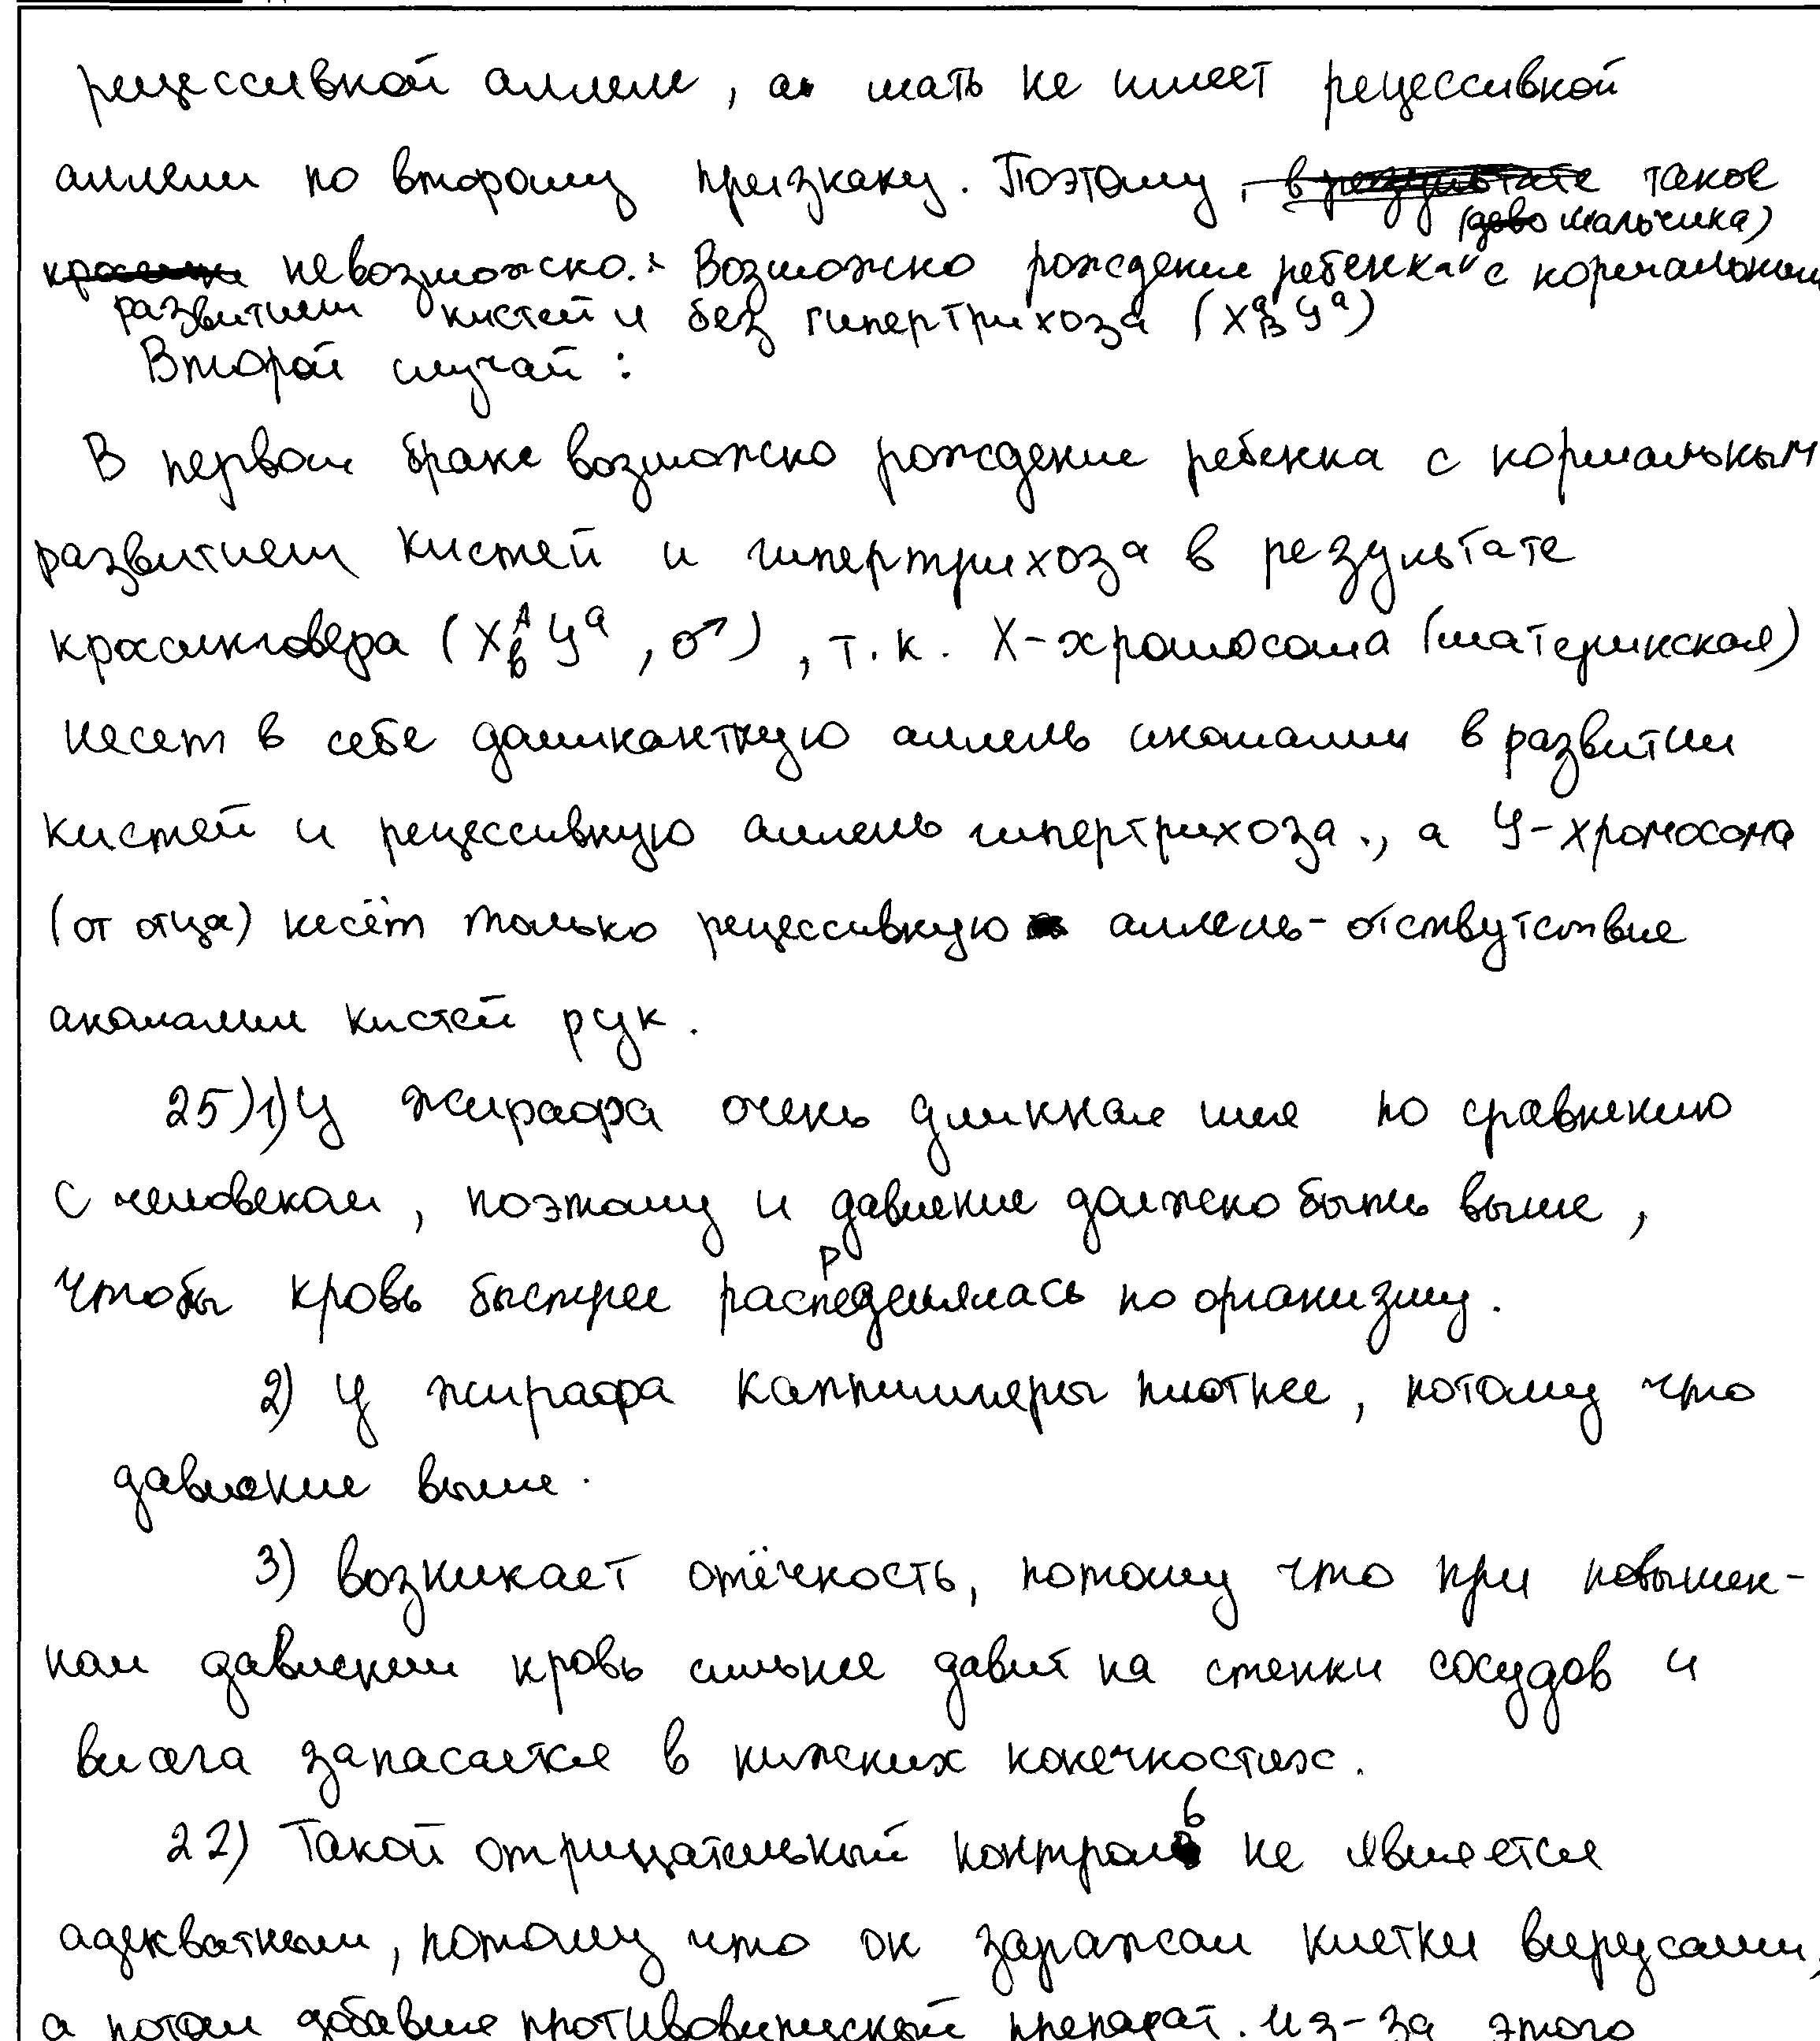 рецессивной аллели, а мать не имеет рецессивной
аллели по второму признаку. Поэтому, в результате такое
(дево мальчика)
невозможно. Возможно рождение ребенка с нормальным
развитием кистей и без гипертрихоза (X^a_B У^a)
Второй случай:
В первом браке возможно рождение ребенка с нормальным
развитием кистей и гипертрихоза в результате
кроссинговера (X^A_b У^a, ♂), т.к. Х-хромосома (материнская)
несет в себе доминантную аллель аномалии в развитии
кистей и рецессивную аллель гипертрихоза., а У-хромосома
(от отца) несёт только рецессивную аллель - отствутствие
аномалии кистей рук.
25)1)У жирафа очень длинная шея по сравнению
с человеком, поэтому и давление должно быть выше,
чтобы кровь быстрее распределялась по организму.
2) У жирафа каппилляры плотнее, потому что
давление выше.
3) возникает отёчность, потому что при повышен-
ном давлении кровь сильнее давит на стенки сосудов и
влага запасается в нижних конечностях.
22) Такой отрицательный контроль не является
адекватным, потому что он заражал клетки вирусами,
а потом добавлял противовирусный препарат. Из-за этого